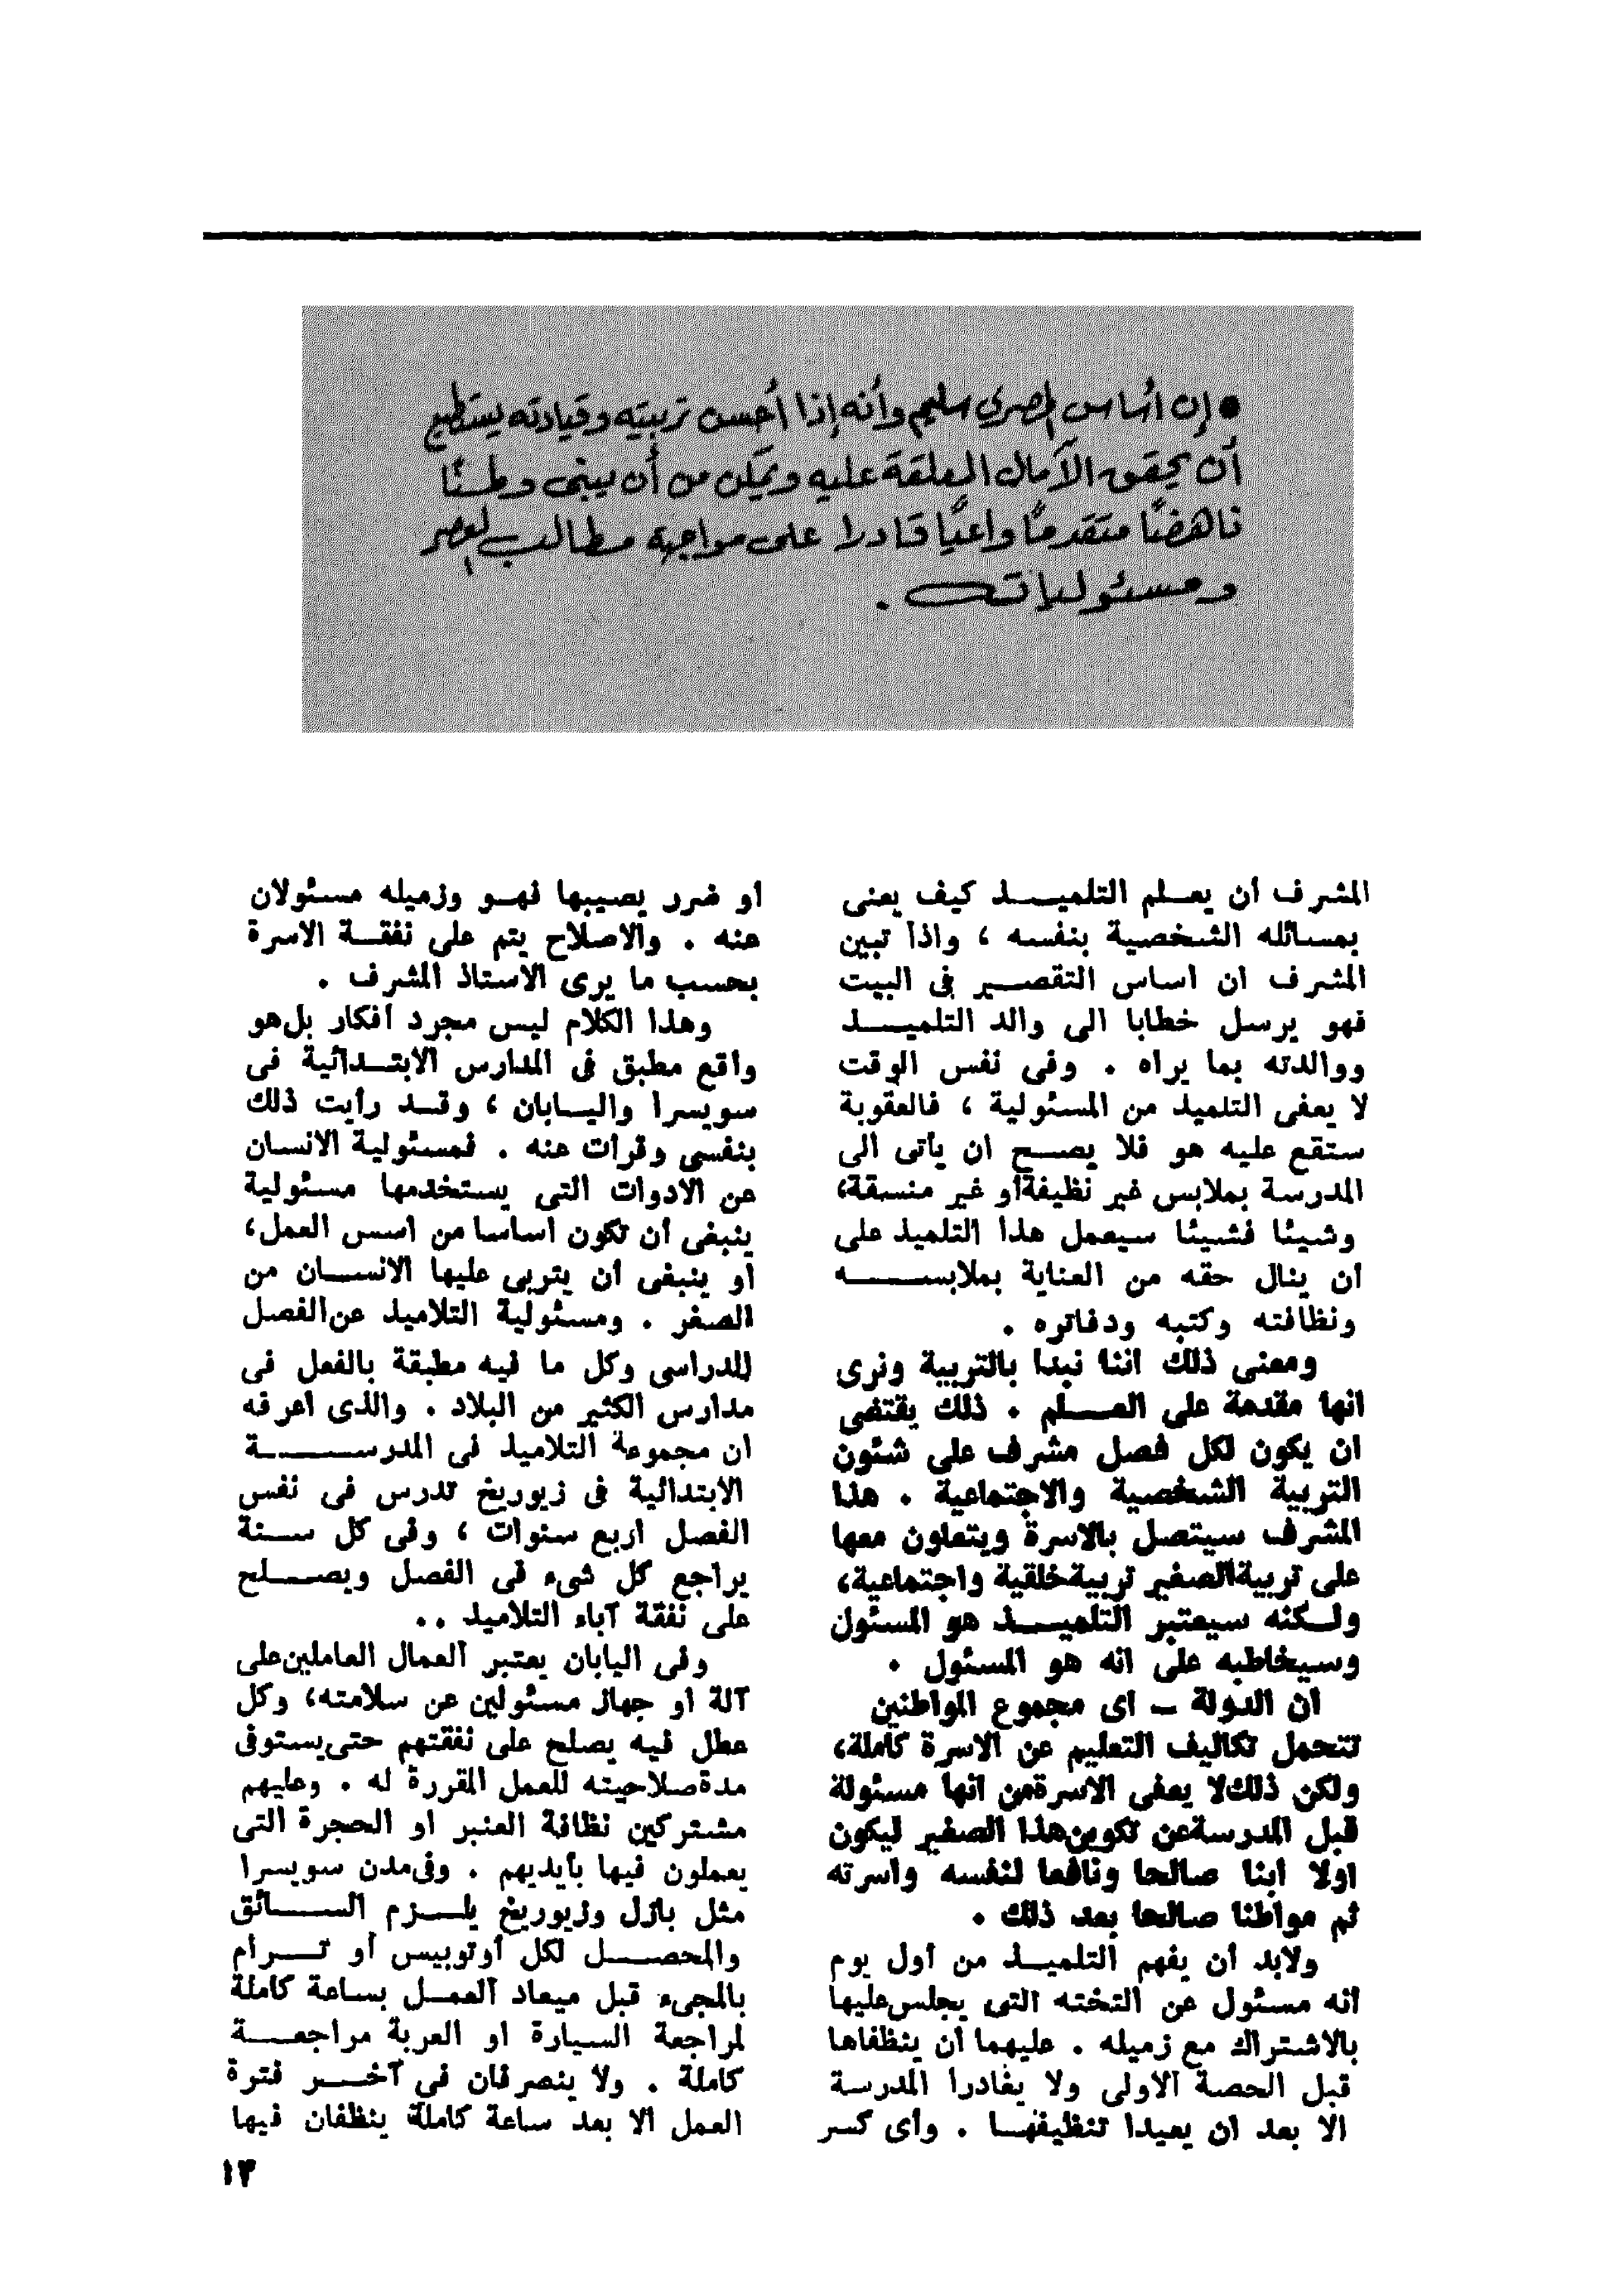 ● إن أساس المصري سليم وأنه إذا أحسن تربيته وقيادته يستطيع
أن يحقق الآمال المعلقة عليه ويمكن من أن يبنى وطنًا
ناهضًا متقدمًا واعيًا قادرا على مواجهة مطالب العصر
ومسئولياته .
المشرف أن يعلم التلميذ كيف يعنى
بمسائله الشخصية بنفسه ، واذا تبين
المشرف ان اساس التقصير فى البيت
فهو يرسل خطابا الى والد التلميذ
ووالدته بما يراه . وفى نفس الوقت
لا يعفى التلميذ من المسئولية ، فالعقوبة
ستقع عليه هو فلا يصح ان يأتى الى
المدرسة بملابس غير نظيفة أو غير منسقة،
وشيئا فشيئا سيعمل هذا التلميذ على
ان ينال حقه من العناية بملابسه
ونظافته وكتبه ودفاتره .
ومعنى ذلك اننا نبدا بالتربية ونرى
انها مقدمة على العلم . ذلك يقتضى
ان يكون لكل فصل مشرف على شئون
التربية الشخصية والاجتماعية . هذا
المشرف سيتصل بالاسرة ويتعاون معها
على تربية الصغير تربية خلقية واجتماعية،
ولكنه سيعتبر التلميذ هو المسئول
وسيخاطبه على انه هو المسئول .
ان الدولة – اى مجموع المواطنين
تتحمل تكاليف التعليم عن الاسرة كاملة،
ولكن ذلك لا يعفى الاسرة من انها مسئولة
قبل المدرسة عن تكوين هذا الصغير ليكون
اولا ابنا صالحا ونافعا لنفسه واسرته
ثم مواطنا صالحا بعد ذلك .
ولابد أن يفهم التلميذ من أول يوم
انه مسئول عن التخته التى يجلس عليها
بالاشتراك مع زميله . عليهما أن ينظفاها
قبل الحصة الاولى ولا يغادرا المدرسة
الا بعد ان يعيدا تنظيفها . وأى كسر
او ضرر يصيبها فهو وزميله مسئولان
عنه . والاصلاح يتم على نفقة الاسرة
بحسب ما يرى الاستاذ المشرف .
وهذا الكلام ليس مجرد أفكار بل هو
واقع مطبق فى المدارس الابتدائية فى
سويسرا واليابان ، وقد رأيت ذلك
بنفسى وقرات عنه . فمسئولية الانسان
عن الادوات التى يستخدمها مسئولية
ينبغى أن تكون اساسا من اسس العمل،
أو ينبغى ان يتربى عليها الانسان من
الصغر . ومسئولية التلاميذ عن الفصل
الدراسى وكل ما فيه مطبقة بالفعل فى
مدارس الكثير من البلاد . والذى اعرفه
ان مجموعة التلاميذ فى المدرسة
الابتدائية فى زيوريخ تدرس فى نفس
الفصل اربع سنوات ، وفى كل سنة
يراجع كل شىء فى الفصل ويصلح
على نفقة آباء التلاميذ ..
وفى اليابان يعتبر العمال العاملين على
آلة او جهاز مسئولين عن سلامته، وكل
عطل فيه يصلح على نفقتهم حتى يستوفى
مدة صلاحيته للعمل المقررة له . وعليهم
مشتركين نظافة العنبر او الحجرة التى
يعملون فيها بأيديهم . وفى مدن سويسرا
مثل بازل وزيوريخ يلزم السائق
والمحصل لكل أوتوبيس أو ترام
بالمجىء قبل ميعاد العمل بساعة كاملة
لمراجعة السيارة او العربة مراجعة
كاملة . ولا ينصرفان فى آخر فترة
العمل الا بعد ساعة كاملة ينظفان فيها
١٣